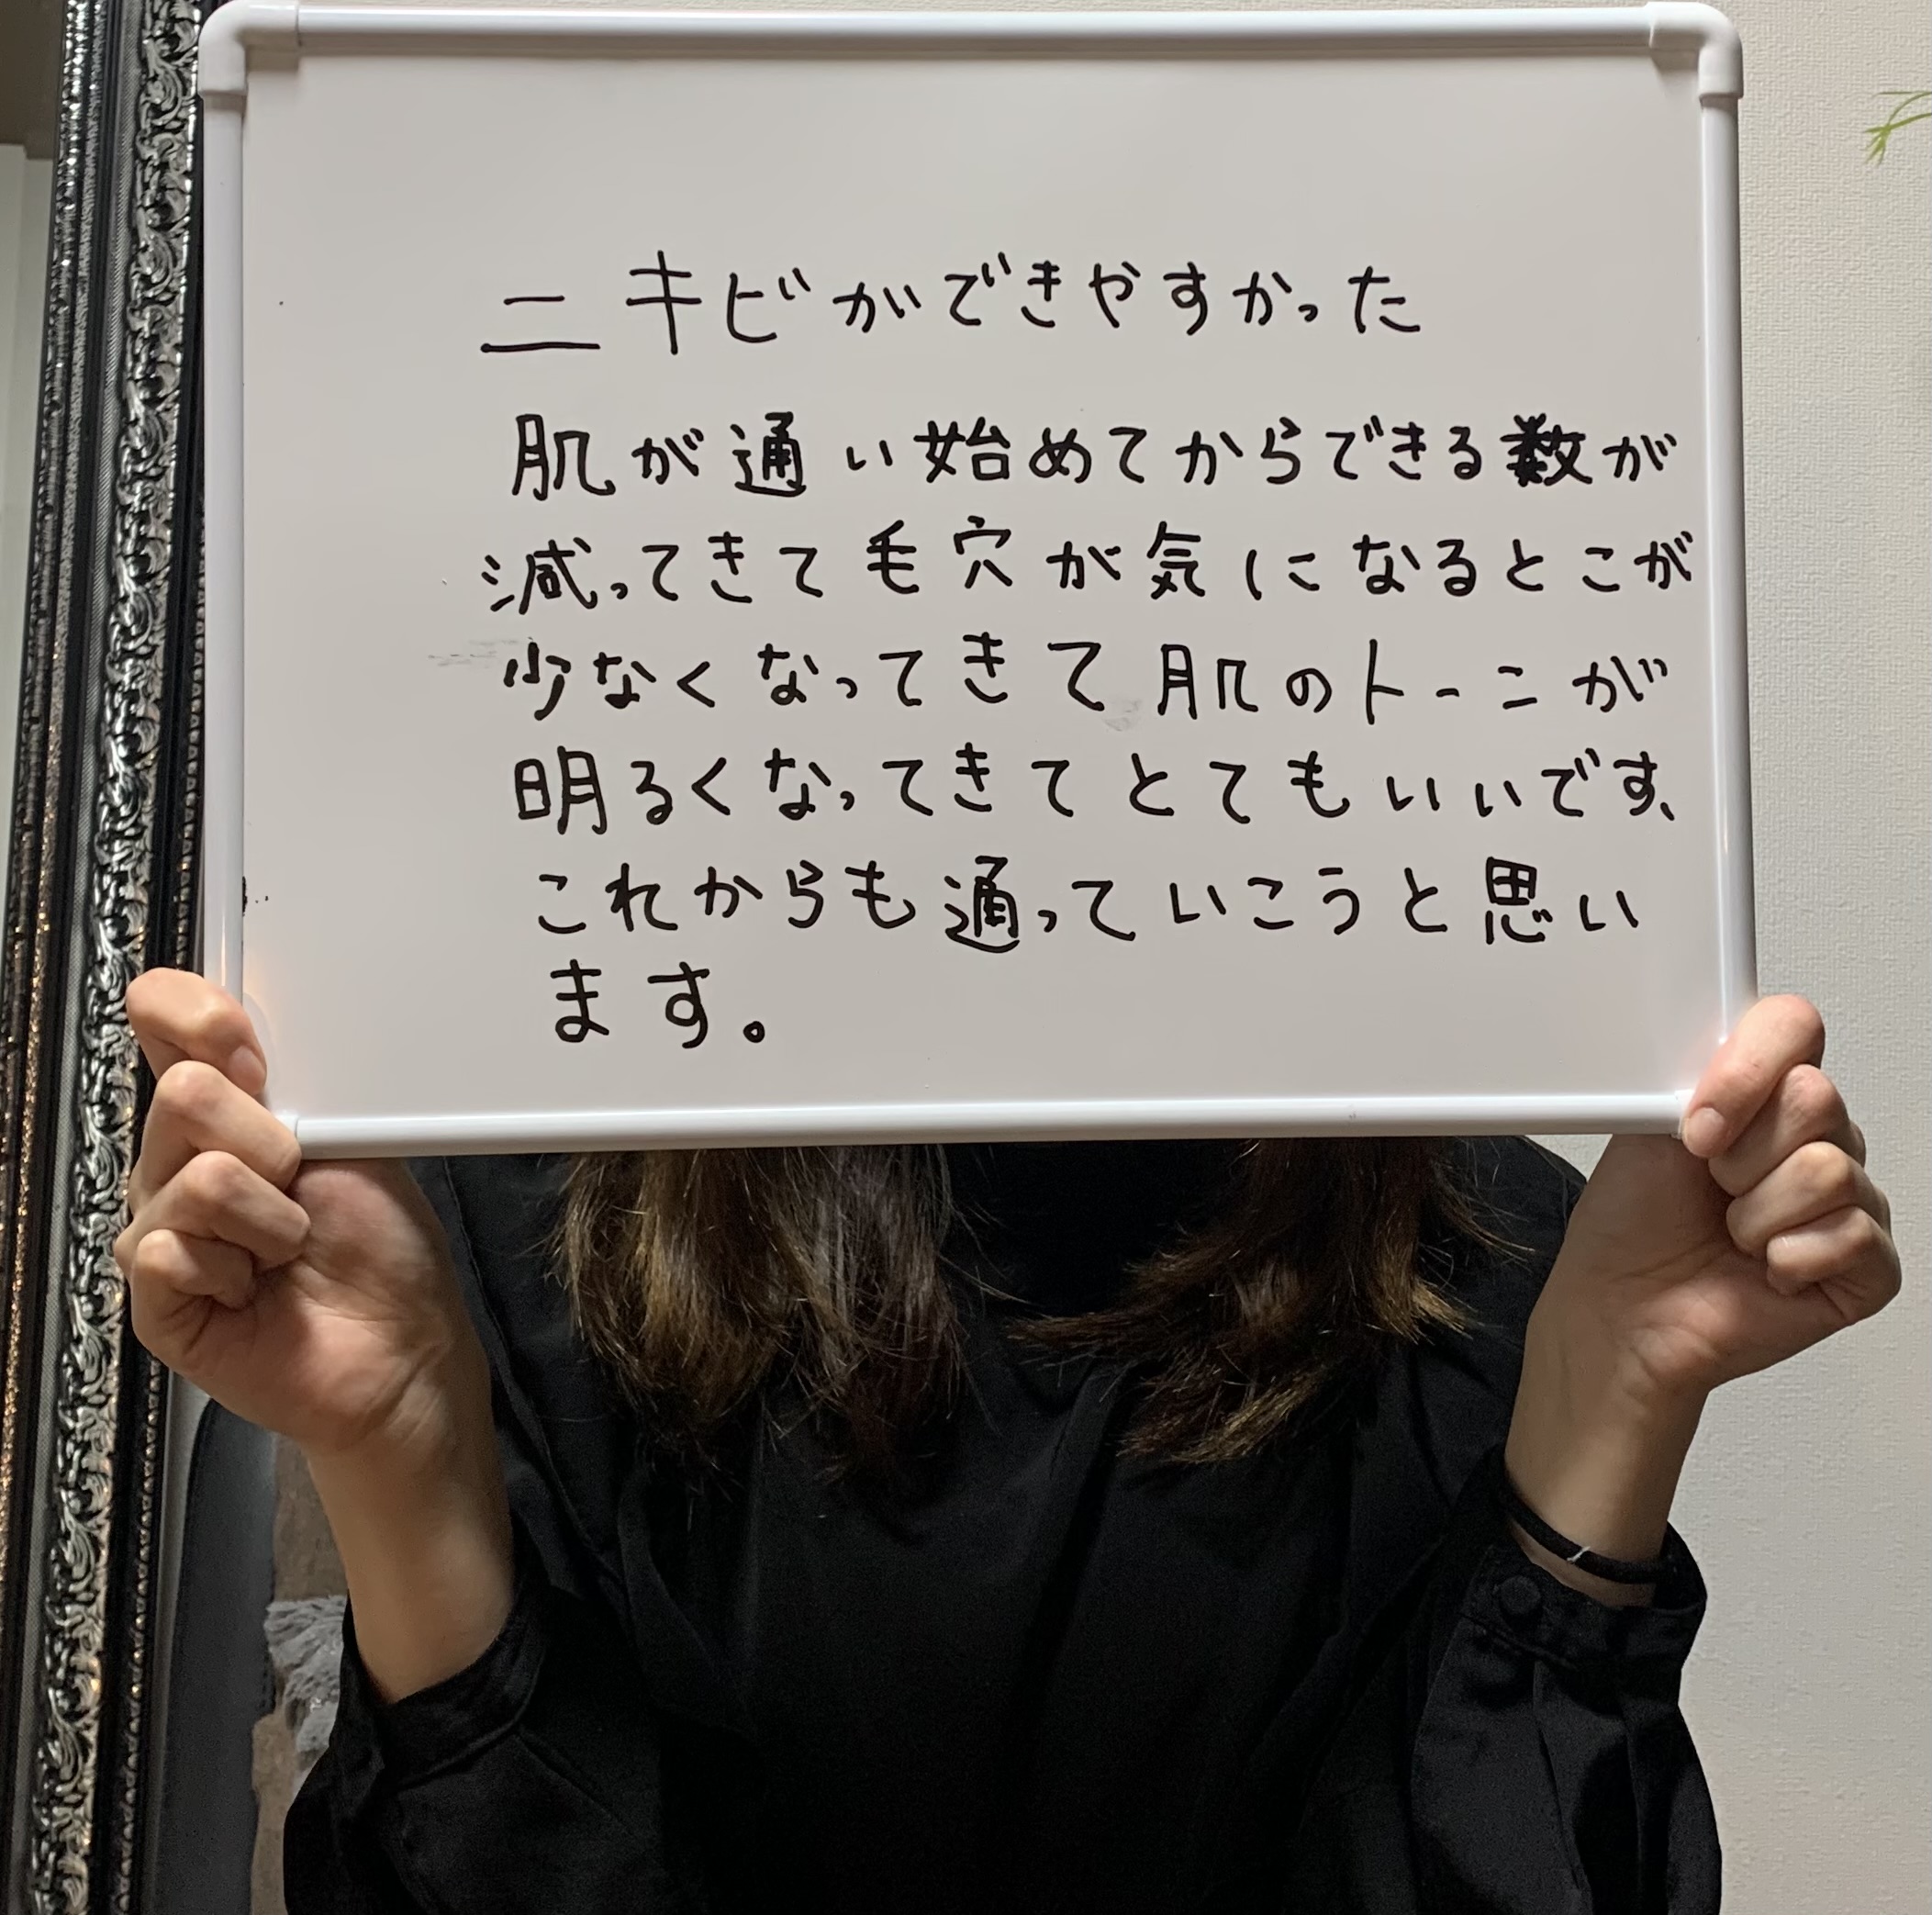 ニキビができやすかった
肌が通い始めてからできる数が
減ってきて毛穴が気になるとこが
少なくなってきて肌のトーンが
明るくなってきてとてもいいです、
これからも通っていこうと思い
ます。